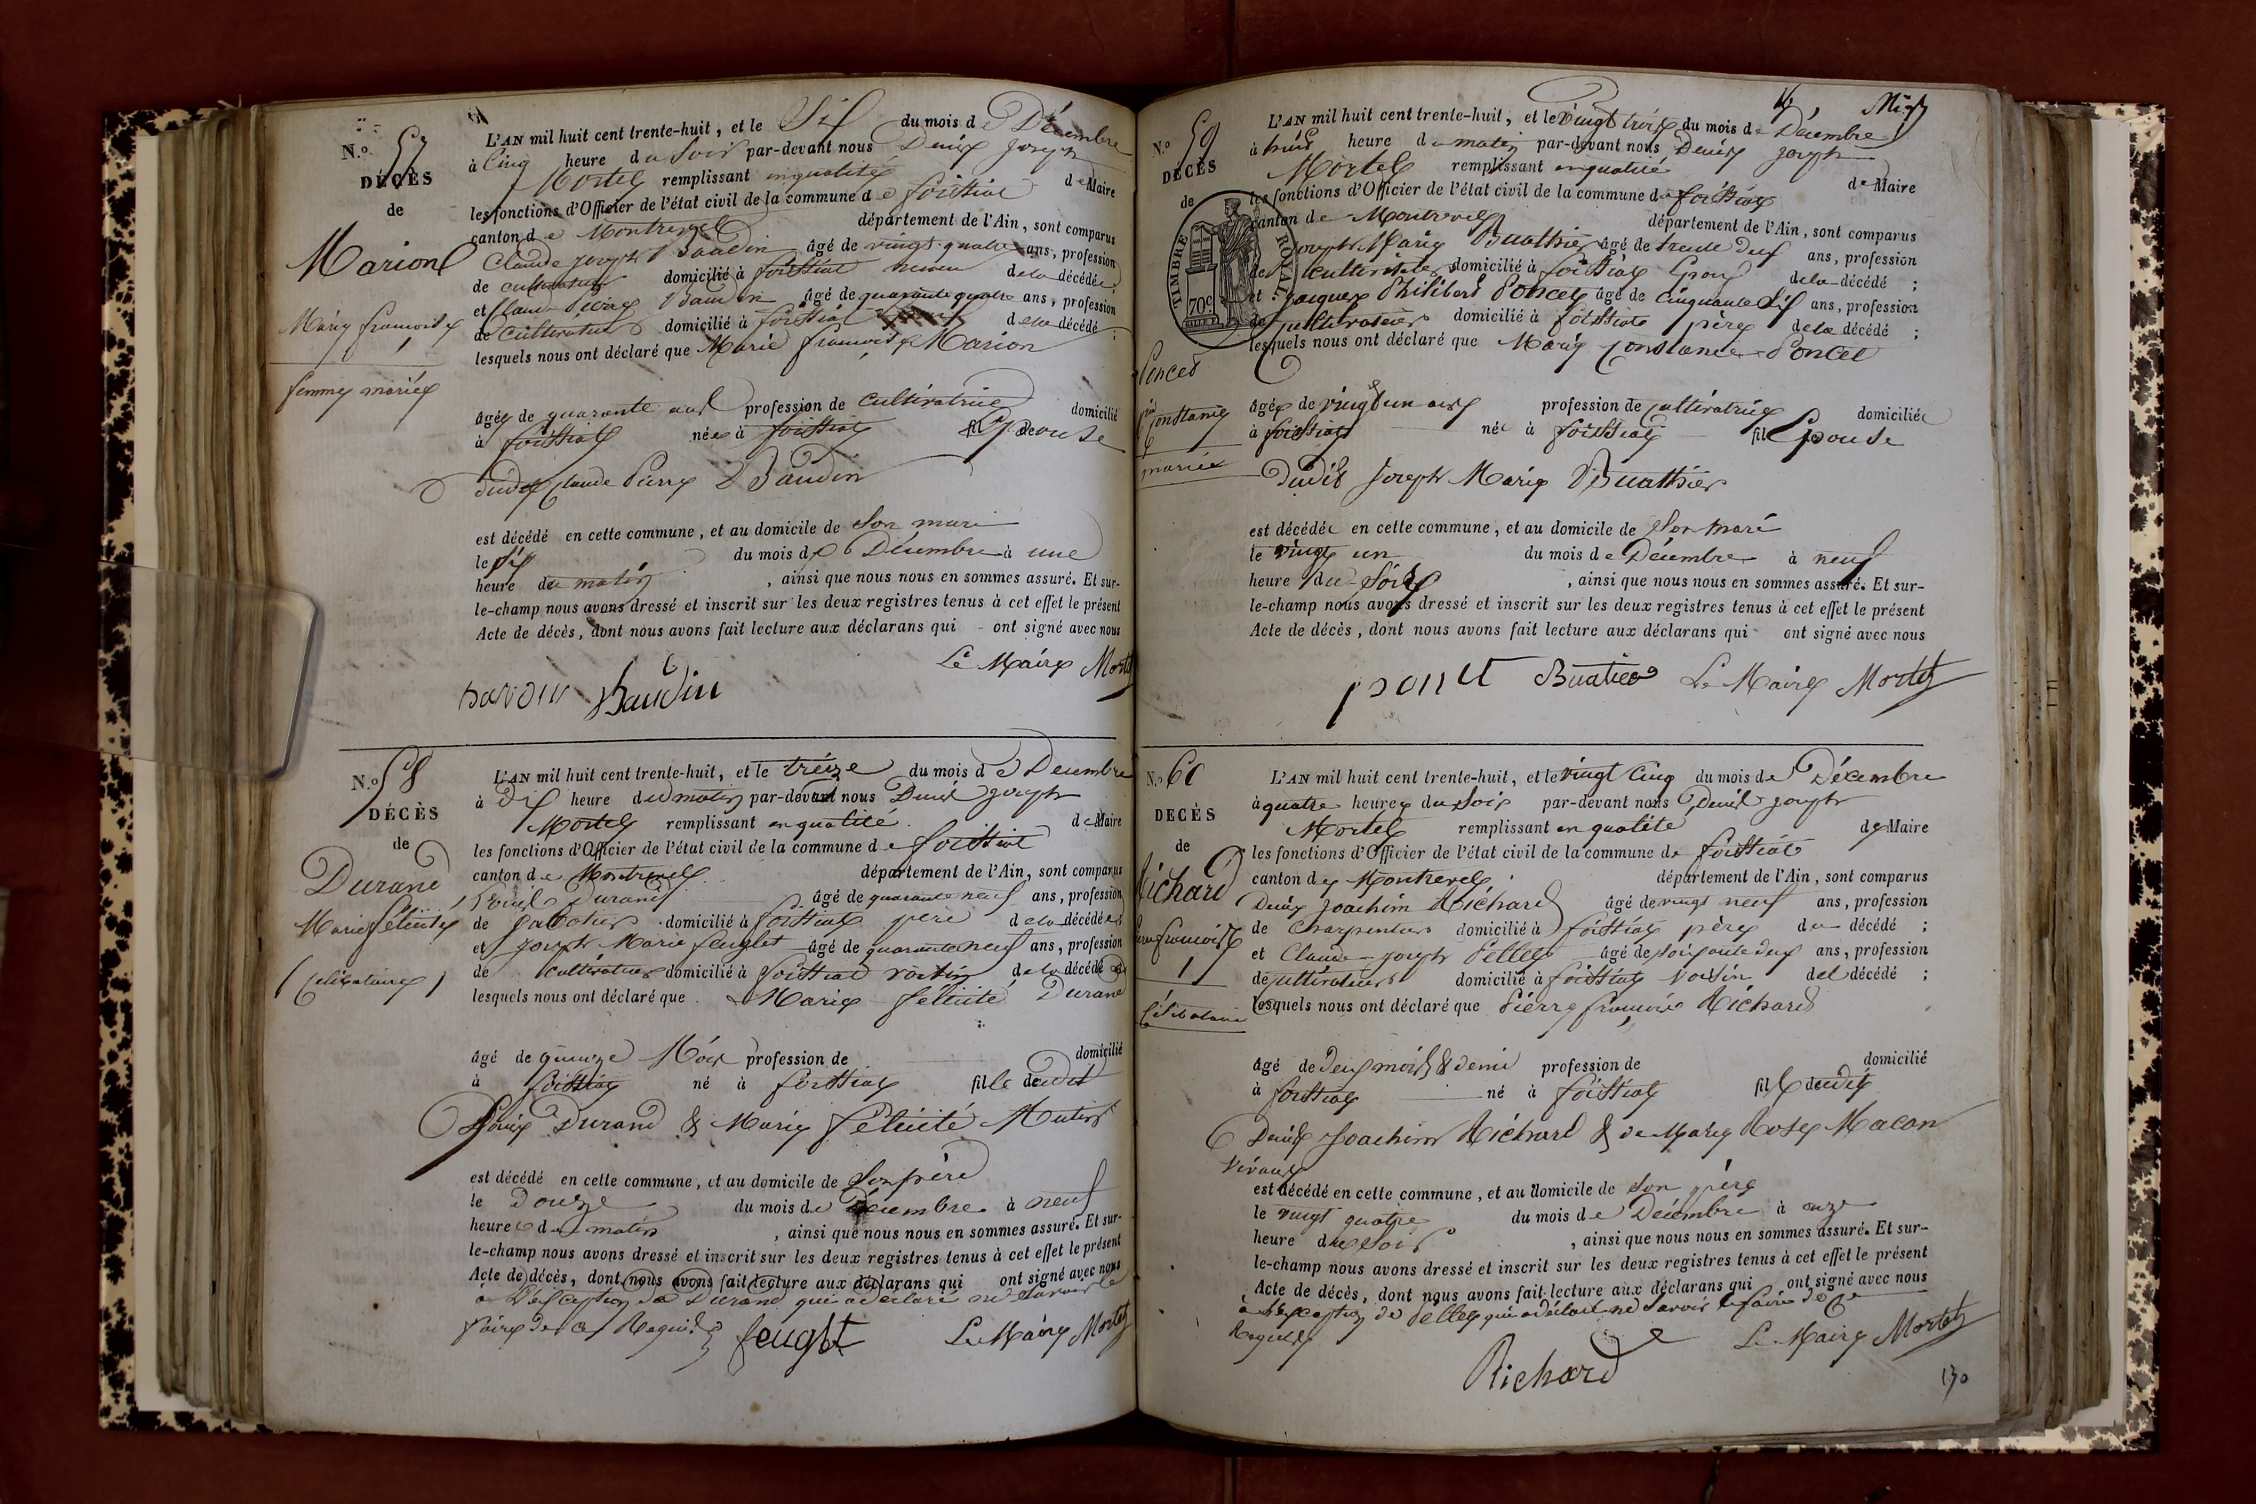 N.o 57
DÉCÈS
de
Marion
Marie françoise
femme mariée
L'AN mil huit cent trente-huit, et le Six du mois de Décembre
à Cinq heure du Soir par-devant nous Denis Joseph
Mortel remplissant en qualité de Maire
les fonctions d'Officier de l'état civil de la commune de foissiat
canton de Montrevel département de l'Ain, sont comparus
Claude Joseph Baudin âgé de vingt quatre ans, profession
de cultivateur domicilié à foissiat neveu de la décédée
et Claude Pierre Baudin âgé de quarante quatre ans, profession
de Cultivateur domicilié à foissiat de la décédé ;
lesquels nous ont déclaré que Marie françoise Marion
âgée de quarante ans profession de cultivatrice domicilié
à foissiat née à foissiat Epouse
dudit Claude Pierre Baudin
est décédé en cette commune, et au domicile de Son mari
le six du mois de Décembre à une
heure du matin, ainsi que nous nous en sommes assuré. Et sur-
le-champ nous avons dressé et inscrit sur les deux registres tenus à cet effet le présent
Acte de décès, dont nous avons fait lecture aux déclarans qui ont signé avec nous
Le Maire Mortel
Baudin
N.o 58
DÉCÈS
de
Durand
Marie félicité
(celibataire)
L'AN mil huit cent trente-huit, et le treize du mois de Decembre
à Dix heure du matin par-devant nous Denis Joseph
Mortel remplissant en qualité de Maire
les fonctions d'Officier de l'état civil de la commune de foissiat
canton de Montrevel département de l'Ain, sont comparus
Louis Durand âgé de quarante neuf ans, profession
de Sabotier domicilié à foissiat père de la décédée
et Joseph Marie feuglet âgé de quarante neuf ans, profession
de cultivateur domicilié à foissiat voisin de la décédé
lesquels nous ont déclaré que Marie félicité Durand
âgé de quinze Mois profession de domicilié
à foissiat né à foissiat fille dudit
Louis Durand & Marie félicité
est décédé en cette commune, et au domicile de Son père
le Douze du mois de Décembre à neuf
heure du matin, ainsi que nous nous en sommes assuré. Et sur-
le-champ nous avons dressé et inscrit sur les deux registres tenus à cet effet le présent
Acte de décès, dont nous avons fait lecture aux déclarans qui ont signé avec nous
à l'Exception de Durand qui a déclaré ne Savoir le
faire de ce Requis
Le Maire Mortel
N.o 59
DÉCÈS
de
TIMBRE ROYAL
70c
Poncet
Constance
mariée
L'AN mil huit cent trente-huit, et le vingt trois du mois de Décembre
à huit heure du matin par-devant nous Denis Joseph
Mortel remplissant en qualité de Maire
les fonctions d'Officier de l'état civil de la commune de foissiat
canton de Montrevel département de l'Ain, sont comparus
Joseph Marie Buathier âgé de trente deux ans, profession
de cultivateur domicilié à foissiat Epoux de la décédé ;
et Jacques Philibert Poncet âgé de Cinquante Six ans, profession
de cultivateur domicilié à foissiat père de la décédé ;
lesquels nous ont déclaré que Marie Constance Poncet
âgée de vingt un ans profession de cultivatrice domiciliée
à foissiat née à foissiat fil Epouse
Dudit Joseph Marie Buathier
est décédée en cette commune, et au domicile de Son mari
le vingt un du mois de Décembre à neuf
heure du Soir, ainsi que nous nous en sommes assuré. Et sur-
le-champ nous avons dressé et inscrit sur les deux registres tenus à cet effet le présent
Acte de décès, dont nous avons fait lecture aux déclarans qui ont signé avec nous
Buatier Le Maire Mortel
N.o 60
DÉCÈS
de
Richard
Pierre françois
Célibataire
L'AN mil huit cent trente-huit, et le vingt Cinq du mois de Décembre
à quatre heure du Soir par-devant nous Denis Joseph
Mortel remplissant en qualité de Maire
les fonctions d'Officier de l'état civil de la commune de foissiat
canton de Montrevel département de l'Ain, sont comparus
Denis Joachim Richard âgé de vingt neuf ans, profession
de Charpentier domicilié à foissiat père du décédé ;
et Claude Joseph Pellet âgé de Soixante deux ans, profession
de cultivateur domicilié à foissiat Voisin del décédé ;
lesquels nous ont déclaré que Pierre françois Richard
âgé de Deux mois & demi profession de domicilié
à foissiat né à foissiat fils dudit
Denis Joachim Richard & de Marie Rose Macon
vivans
est décédé en cette commune, et au domicile de Son père
le vingt quatre du mois de Décembre à onze
heure du Soir, ainsi que nous nous en sommes assuré. Et sur-
le-champ nous avons dressé et inscrit sur les deux registres tenus à cet effet le présent
Acte de décès, dont nous avons fait lecture aux déclarans qui ont signé avec nous
à l'Exception de Pellet qui a déclaré ne Savoir le faire de ce
Requis
Le Maire Mortel
Richard
170